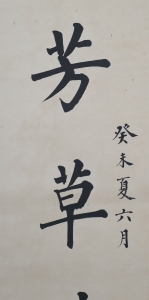 芳草
癸未夏六月